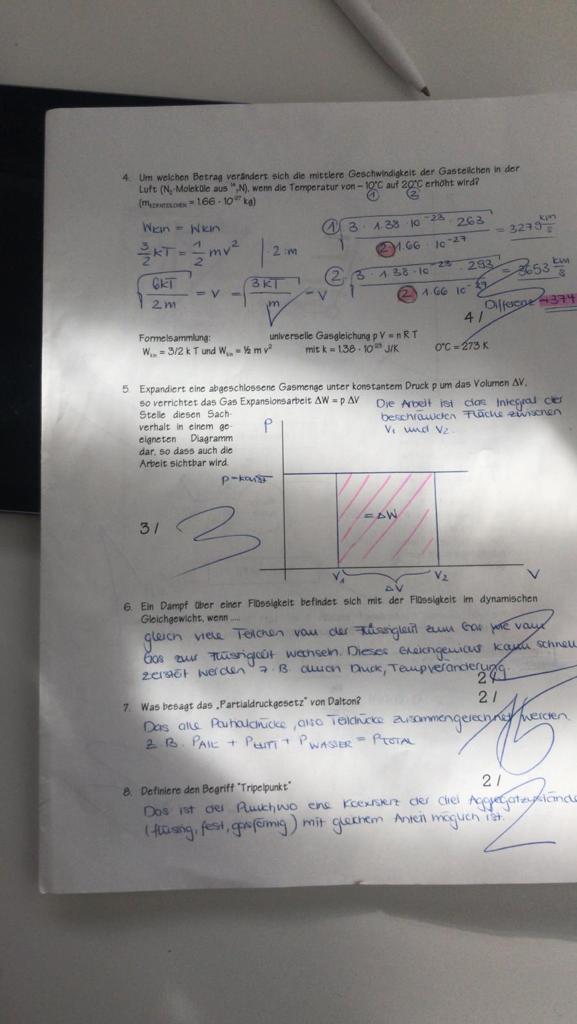 4. Um welchen Betrag verändert sich die mittlere Geschwindigkeit der Gasteilchen in der
Luft (N₂-Moleküle aus ¹⁴₇N), wenn die Temperatur von – 10°C auf 20°C erhöht wird?
① ②
(mKERNTEILCHEN = 1.66 · 10⁻²⁷ kg)
Wkin = Wkin
3/2 kT = 1/2 mv² | · 2 : m
√(6kT / 2m) = v = √(3kT / m) = v
① √(3 · 1.38 · 10⁻²³ · 263 / ② 1.66 · 10⁻²⁷) = 3279 km/s
② √(3 · 1.38 · 10⁻²³ · 293 / ② 1.66 10⁻²⁷) = 3653 km/s
Differenz → 374
4/
Formelsammlung: universelle Gasgleichung p V = n R T
Wkin = 3/2 k T und Wkin = ½ m v² mit k = 1.38 · 10⁻²³ J/K 0°C = 273 K
5. Expandiert eine abgeschlossene Gasmenge unter konstantem Druck p um das Volumen ΔV,
so verrichtet das Gas Expansionsarbeit ΔW = p ΔV
Stelle diesen Sach-
verhalt in einem ge-
eigneten Diagramm
dar, so dass auch die
Arbeit sichtbar wird.
Die Arbeit ist das Integral der
beschränkten Fläche zwischen
V₁ und V₂.
P
p=konst
= ΔW
3/ 3
V₁ V₂ V
ΔV
6. Ein Dampf über einer Flüssigkeit befindet sich mit der Flüssigkeit im dynamischen
Gleichgewicht, wenn ....
gleich viele Teilchen von der Flüssigkeit zum Gas wie vom
Gas zur Flüssigkeit wechseln. Dieses Gleichgewicht kann schnell
zerstört werden z.B. durch Druck, Tempveränderung.
2/
7. Was besagt das „Partialdruckgesetz" von Dalton?
2/
Das alle Partialdrücke, also Teildrücke zusammengerechnet werden
z.B. + + PWASSER = PTOTAL
8. Definiere den Begriff "Tripelpunkt"
2/
Das ist der Punkt wo eine Koexistenz der drei Aggregatzustände
(flüssig, fest, gasförmig) mit gleichem Anteil möglich ist.
2